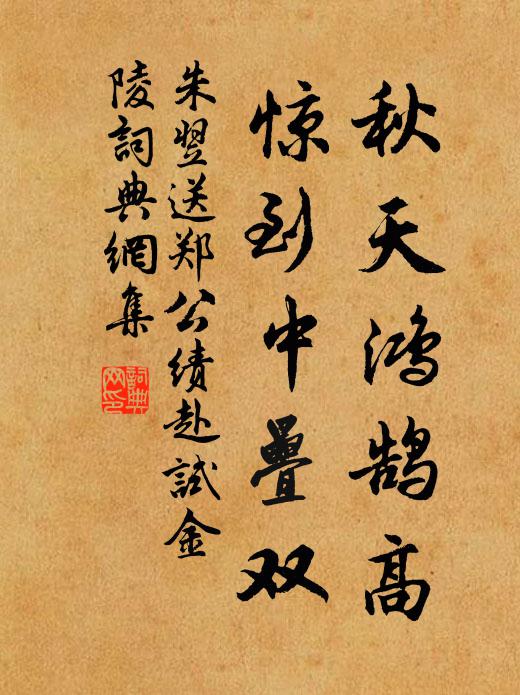 秋天鸿鹄高
惊到中疊双
朱翌送郑公绩赴試金
陵詞典網集
詞典网印